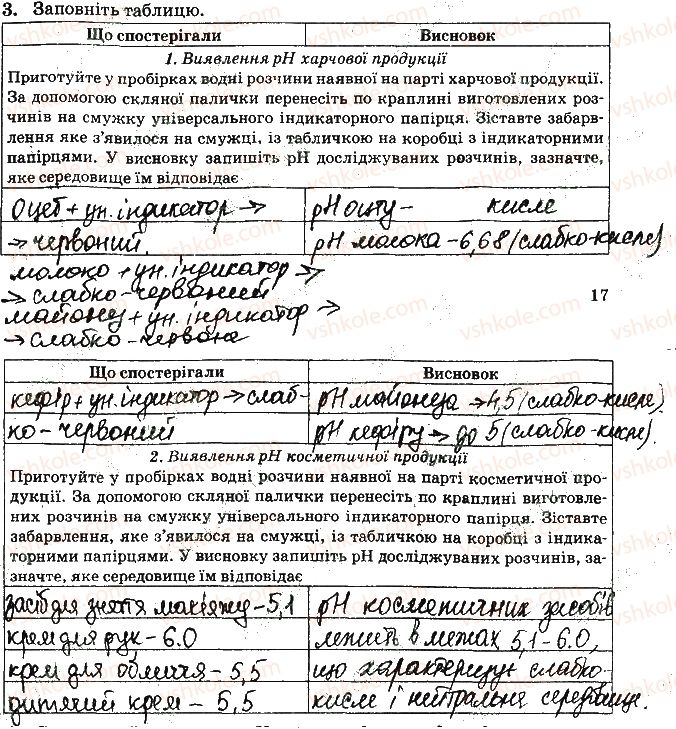 3. Заповніть таблицю.
Що спостерігали Висновок
1. Виявлення рН харчової продукції
Приготуйте у пробірках водні розчини наявної на парті харчової продукції.
За допомогою скляної палички перенесіть по краплині виготовлених роз-
чинів на смужку універсального індикаторного папірця. Зіставте забарв-
лення яке з'явилося на смужці, із табличкою на коробці з індикаторними
папірцями. У висновку запишіть рН досліджуваних розчинів, зазначте,
яке середовище їм відповідає
Оцет + ун. індикатор → рН оцту – кисле
→ червоний. рН молока – 6,68 (слабко-кисле)
молоко + ун. індикатор →
→ слабко-червоний
майонез + ун. індикатор →
→ слабко-червоне
17
Що спостерігали Висновок
кефір + ун. індикатор → слаб- рН майонеза → 4,5 (слабко-кисле).
ко-червоний рН кефіру → до 5 (слабко-кисле).
2. Виявлення рН косметичної продукції
Приготуйте у пробірках водні розчини наявної на парті косметичної про-
дукції. За допомогою скляної палички перенесіть по краплині виготовле-
них розчинів на смужку універсального індикаторного папірця. Зіставте
забарвлення, яке з'явилося на смужці, із табличкою на коробці з індика-
торними папірцями. У висновку запишіть рН досліджуваних розчинів, за-
значте, яке середовище їм відповідає
засіб для зняття макіяжу – 5,1 рН косметичних засобів
крем для рук – 6.0 лежить в межах 5,1–6.0,
крем для обличчя – 5,5 що характеризує слабко-
дитячий крем – 5,5 кисле і нейтральне середовище.